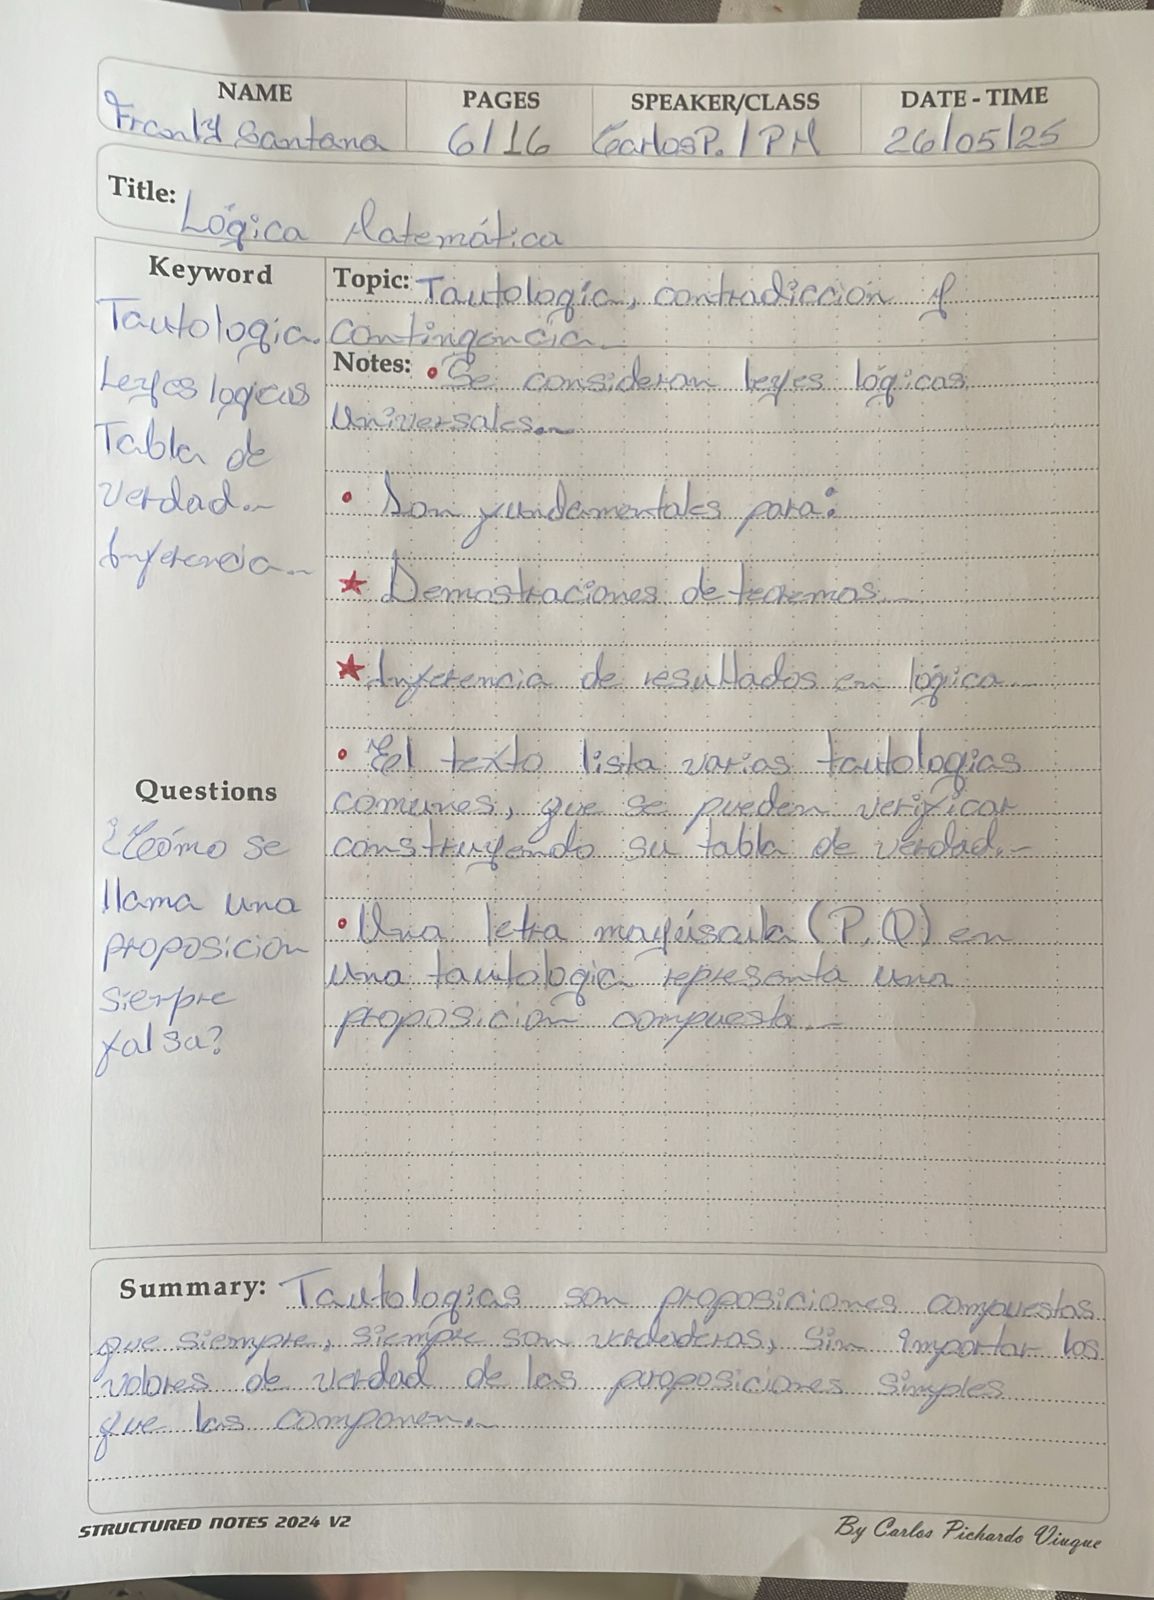 NAME PAGES SPEAKER/CLASS DATE - TIME
Santana 6/16 Carlos P. / PM 26/05/25
Title: Lógica Matemática
Keyword
Tautologia.
Leyes logicas
Tabla de
verdad.
Inferencia.
Topic: Tautologia, contradicción y
contingencia.
Notes: • Se consideran leyes lógicas
universales.
• Son fundamentales para:
★ Demostraciones de teoremas.
★ Inferencia de resultados en lógica.
• El texto lista varias tautologias
comunes, que se pueden verificar
construyendo su tabla de verdad.
• Una letra mayúscula (P, Q) en
una tautologia representa una
proposicion compuesta.
Questions
¿Cómo se
llama una
proposicion
sierpre
falsa?
Summary: Tautologias son proposiciones compuestas
que siempre, siempre son verdaderas, sin importar los
valores de verdad de las proposiciones simples
que las componen.
STRUCTURED NOTES 2024 V2
By Carlos Pichardo Viuque